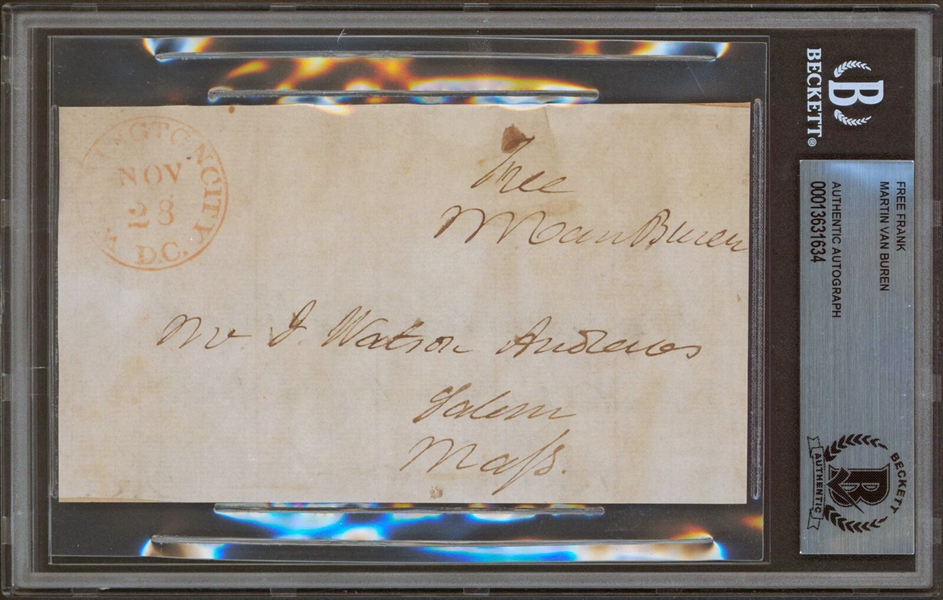 NGTON CITY
NOV
28
D.C.
Free
MVan Buren
Mr J. Watson Andrews
Salem
Mass.
BECKETT
B
FREE FRANK
MARTIN VAN BUREN
AUTHENTIC AUTOGRAPH
00013631634
BECKETT
B
AUTHENTIC